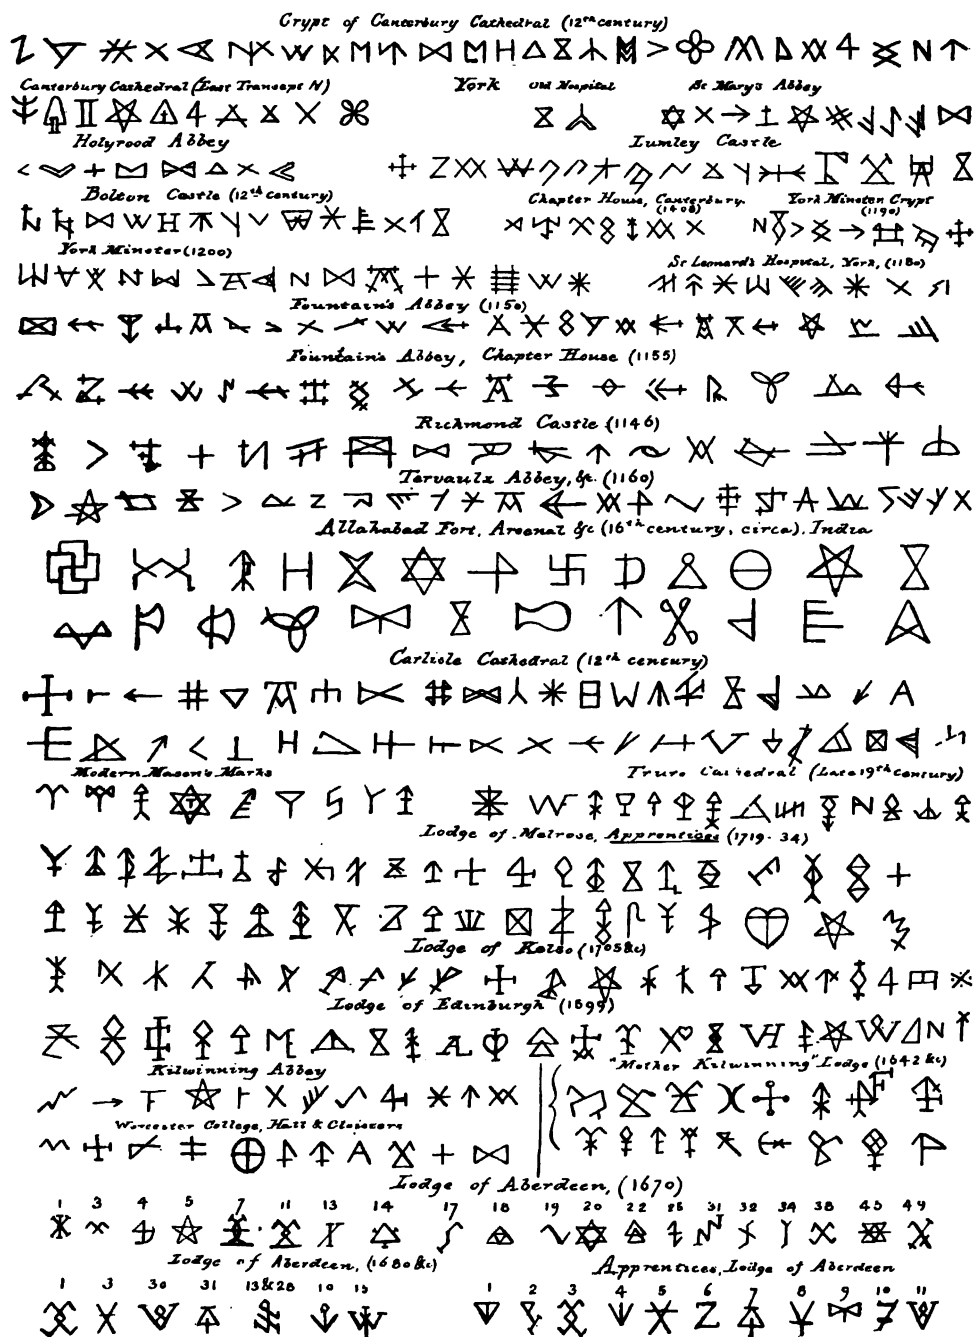 Crypt of Canterbury Cathedral (12th century)
Canterbury Cathedral (East Transept N) York Old Hospital St Mary's Abbey
Holyrood Abbey Lumley Castle
Bolton Castle (12th century) Chapter House, Canterbury. York Minster Crypt
(1190)
York Minster (1200) St Leonard's Hospital, York, (1180)
Fountain's Abbey (1150)
Fountain's Abbey, Chapter House (1155)
Richmond Castle (1146)
Jervaulx Abbey, &c. (1160)
Allahabad Fort, Arsenal &c (16th century, circa). India
Carlisle Cathedral (12th century)
Modern Mason's Marks Truro Cathedral (Late 19th century)
Lodge of Melrose, Apprentices (1719-34)
Lodge of Kelso (1705 &c)
Lodge of Edinburgh (1599)
Kilwinning Abbey "Mother Kilwinning" Lodge (1642 &c)
Worcester College, Hall & Cloisters
Lodge of Aberdeen, (1670)
1 3 4 5 7 11 13 14 17 18 19 20 22 31 32 34 38 45 49
Lodge of Aberdeen, (1680 &c) Apprentices, Lodge of Aberdeen
1 3 30 31 13&28 10 15 1 2 3 4 5 6 7 8 9 10 11